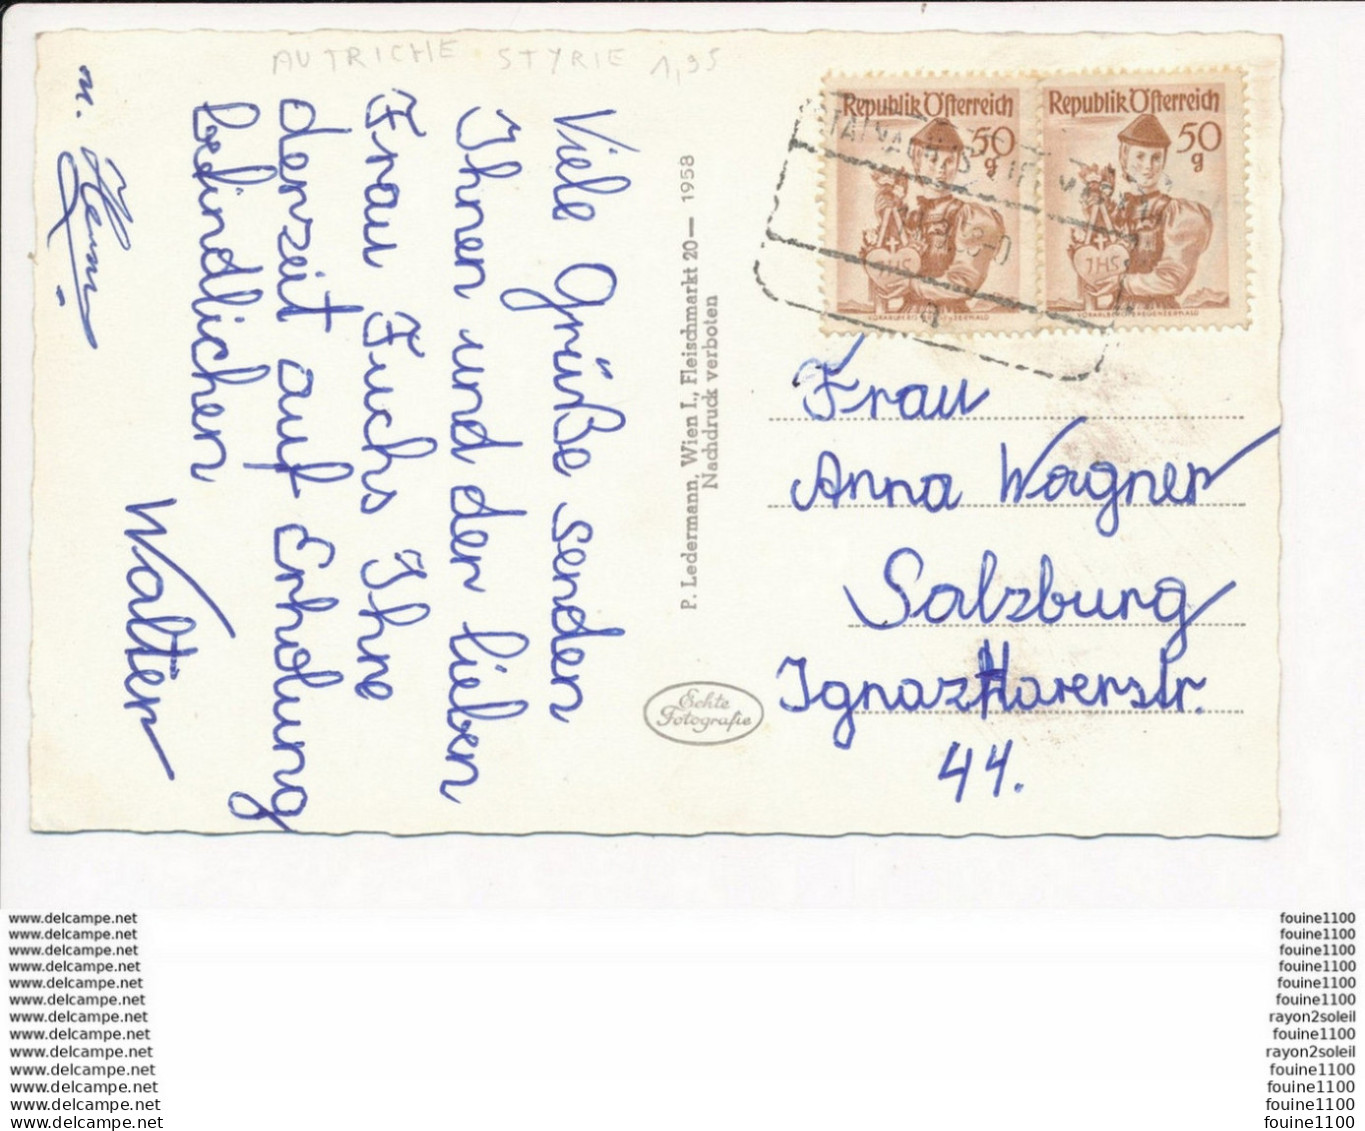 AUTRICHE STYRIE 1,95
Viele Grüße senden
Ihnen und der lieben
Frau Fuchs Ihre
derzeit auf Erholung
befindlichen
Walter
u.
P. Ledermann, Wien I., Fleischmarkt 20— 1958
Nachdruck verboten
Echte
Fotografie
Republik Österreich
50
g
JHS
Republik Österreich
50
g
JHS
Frau
Anna Wagner
Salzburg
Ignaz Harrerstr.
44.
www.delcampe.net
www.delcampe.net
www.delcampe.net
www.delcampe.net
www.delcampe.net
www.delcampe.net
www.delcampe.net
www.delcampe.net
www.delcampe.net
www.delcampe.net
www.delcampe.net
www.delcampe.net
www.delcampe.net
fouine1100
fouine1100
fouine1100
fouine1100
fouine1100
fouine1100
rayon2soleil
fouine1100
rayon2soleil
fouine1100
fouine1100
fouine1100
fouine1100